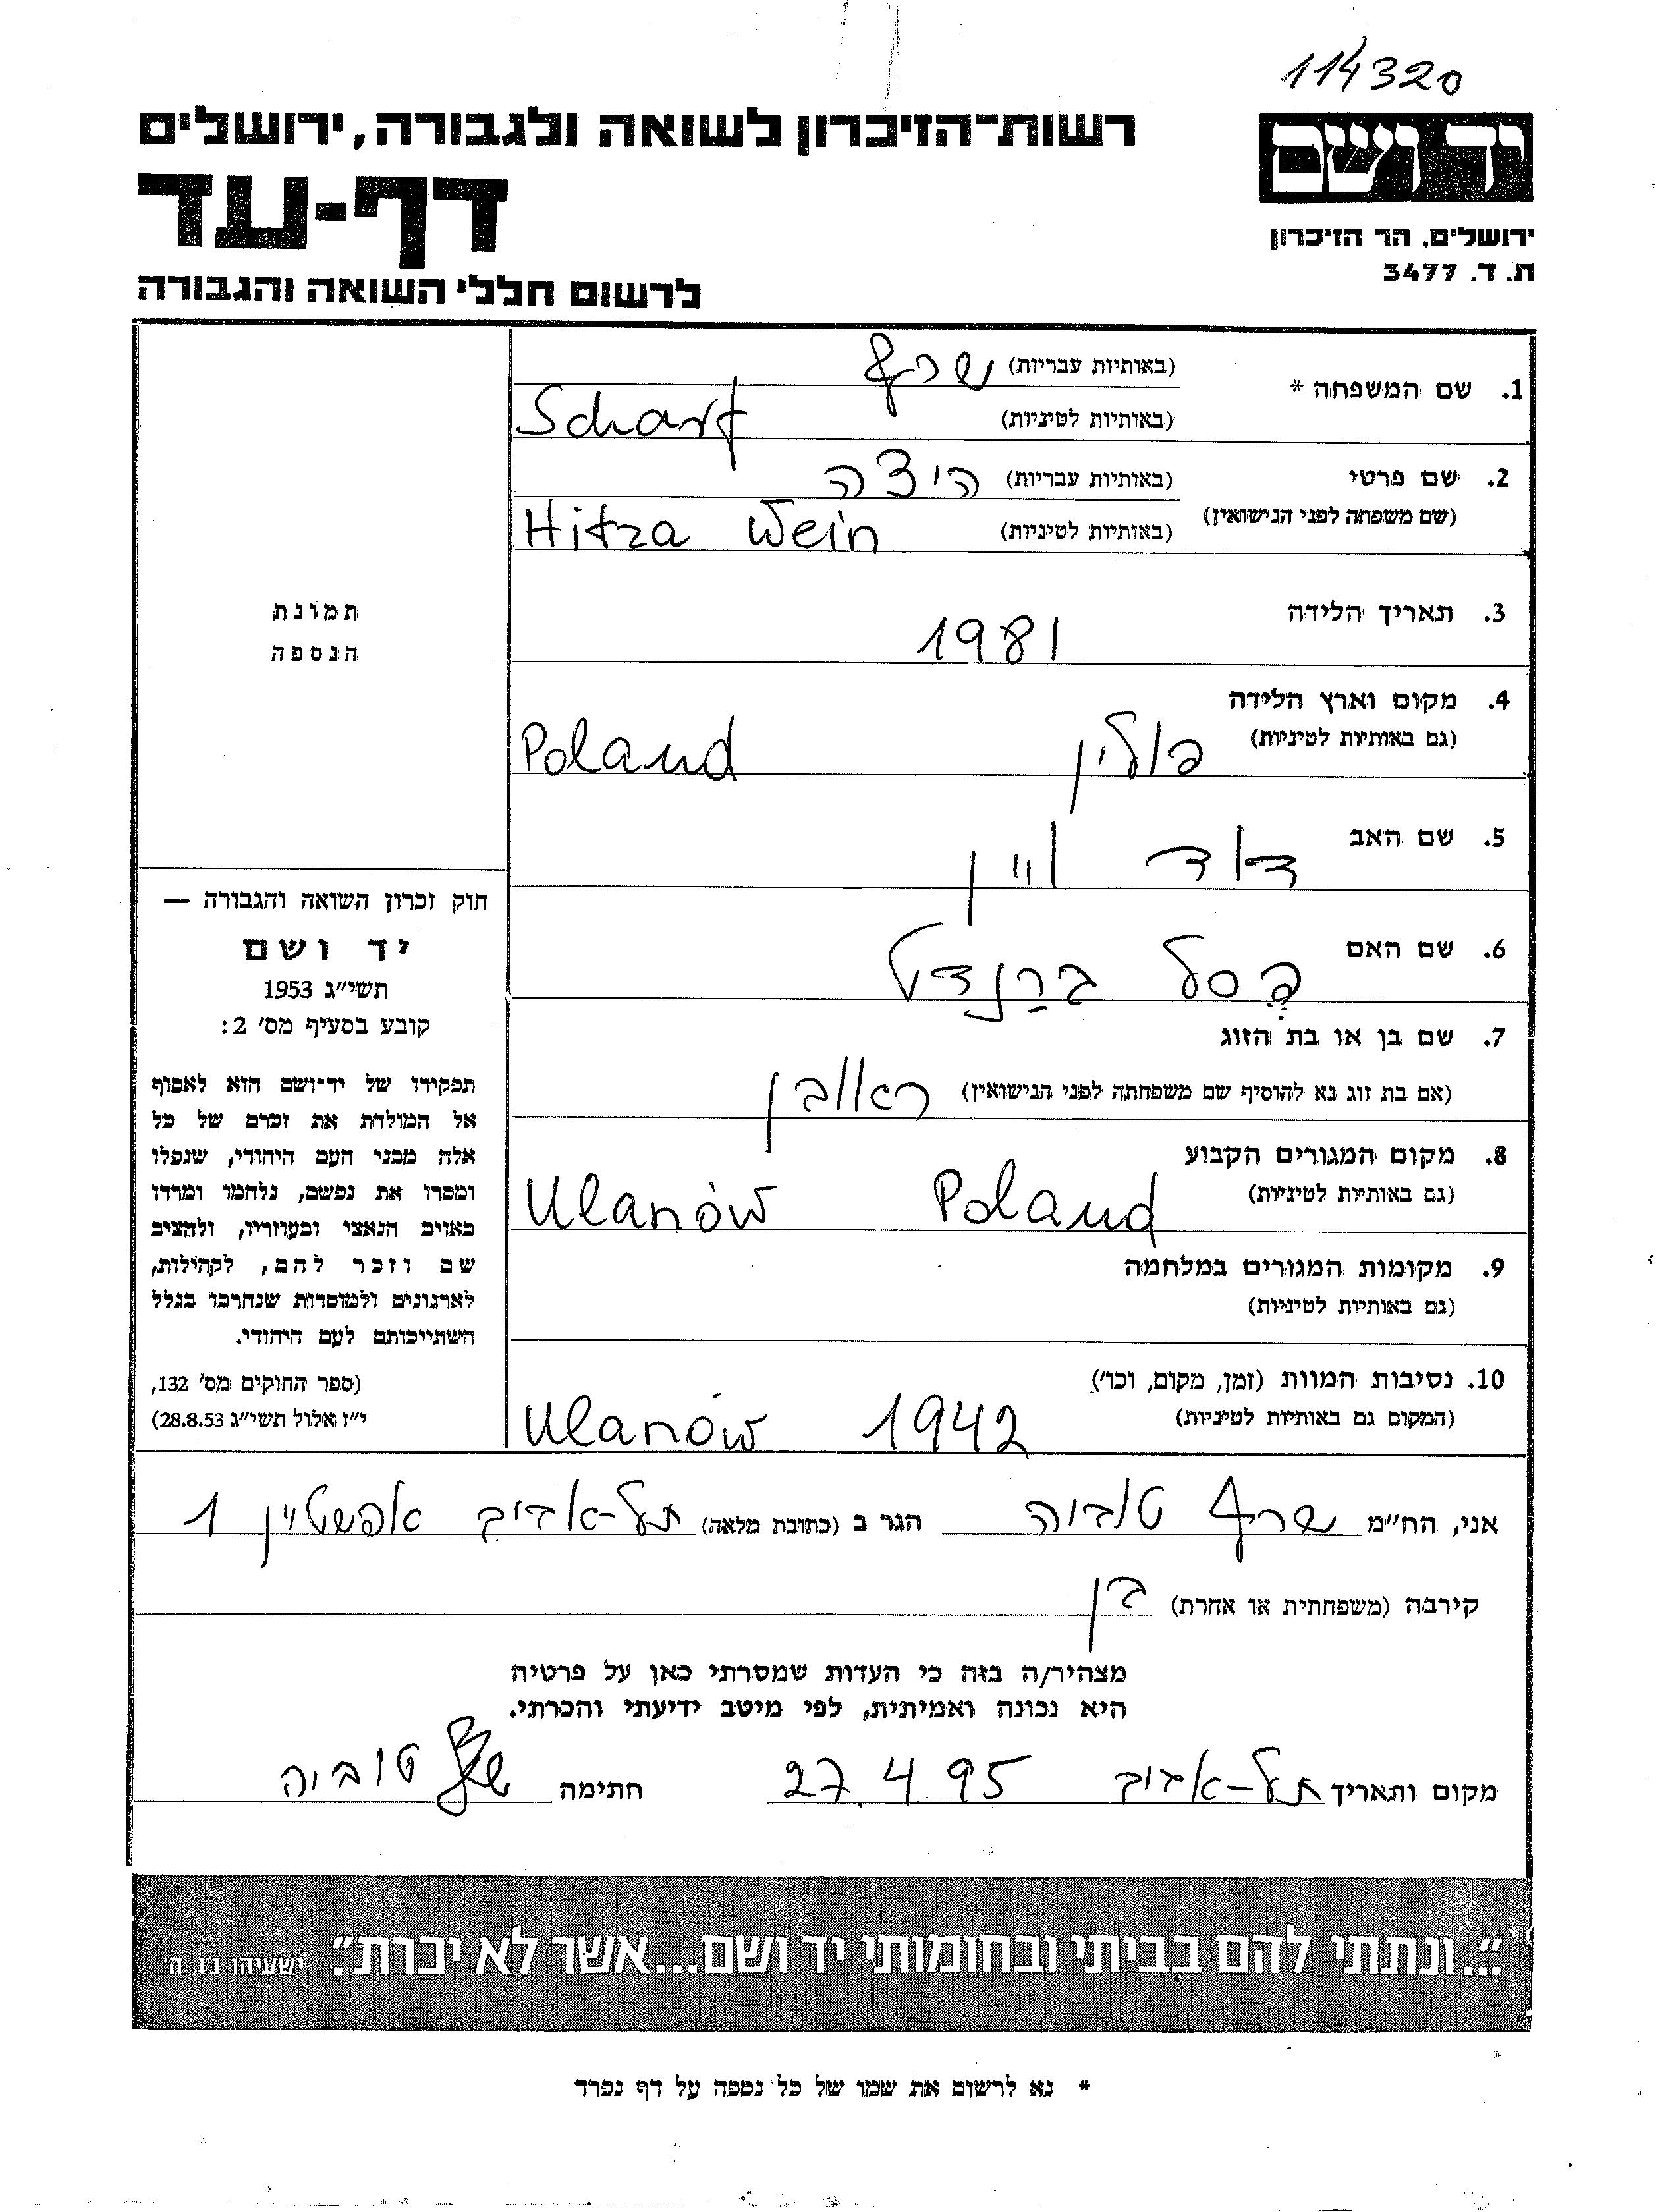 114320
יד ושם
ירושלים, הר הזיכרון
ת. ד. 3477
רשות־הזיכרון לשואה ולגבורה, ירושלים
דף-עד
לרשום חללי השואה והגבורה
1. שם המשפחה * (באותיות עבריות) שרף
(באותיות לטיניות) Scharf
2. שם פרטי (באותיות עבריות) היצה
(שם משפחה לפני הנישואין) (באותיות לטיניות) Hitza Wein
3. תאריך הלידה 1981
4. מקום וארץ הלידה
(גם באותיות לטיניות) פולין Poland
5. שם האב דוד ויין
6. שם האם בסל ברנדל
7. שם בן או בת הזוג
(אם בת זוג נא להוסיף שם משפחתה לפני הנישואין) ראובן
8. מקום המגורים הקבוע
(גם באותיות לטיניות) Ulanów Poland
9. מקומות המגורים במלחמה
(גם באותיות לטיניות)
10. נסיבות המוות (זמן, מקום, וכו')
(המקום גם באותיות לטיניות) Ulanów 1942
תמונת
הנספה
חוק זכרון השואה והגבורה —
יד ושם
תשי״ג 1953
קובע בסעיף מס' 2:
תפקידו של יד־ושם הוא לאסוף
אל המולדת את זכרם של כל
אלה מבני העם היהודי, שנפלו
ומסרו את נפשם, נלחמו ומרדו
באויב הנאצי ובעוזריו, ולהציב
שם וזכר להם, לקהילות,
לארגונים ולמוסדות שנחרבו בגלל
השתייכותם לעם היהודי.
(ספר החוקים מס' 132,
י״ז אלול תשי״ג 28.8.53)
אני, הח״מ שרף טוביה הגר ב (כתובת מלאה) תל-אביב אפשטיין 1
קירבה (משפחתית או אחרת) בן
מצהיר/ה בזה כי העדות שמסרתי כאן על פרטיה
היא נכונה ואמיתית, לפי מיטב ידיעתי והכרתי.
מקום ותאריך תל-אביב 27.4.95 חתימה שרף טוביה
״...ונתתי להם בביתי ובחומותי יד ושם...אשר לא יכרת״. ישעיהו נ״ו ה'
* נא לרשום את שמו של כל נספה על דף נפרד